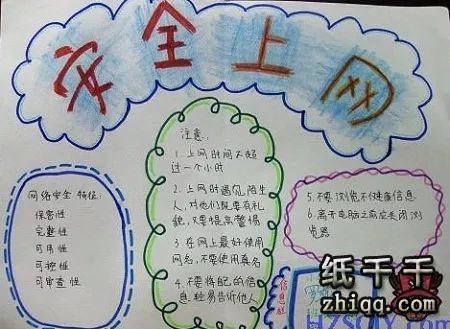 安全上网
网络安全 特征：
保密性
完整性
可用性
可控性
可审查性
注意：
1.上网时间不超
过一个小时
2.上网时遇见陌生
人，对他们既要有礼
貌，又要提高警惕
3.在网上最好使用
网名，不要使用真名
4.不要将自己的信
息轻易告诉他人
5.不要浏览不健康信息
6.离开电脑之前应关闭浏
览器
纸干干
zhiqq.com